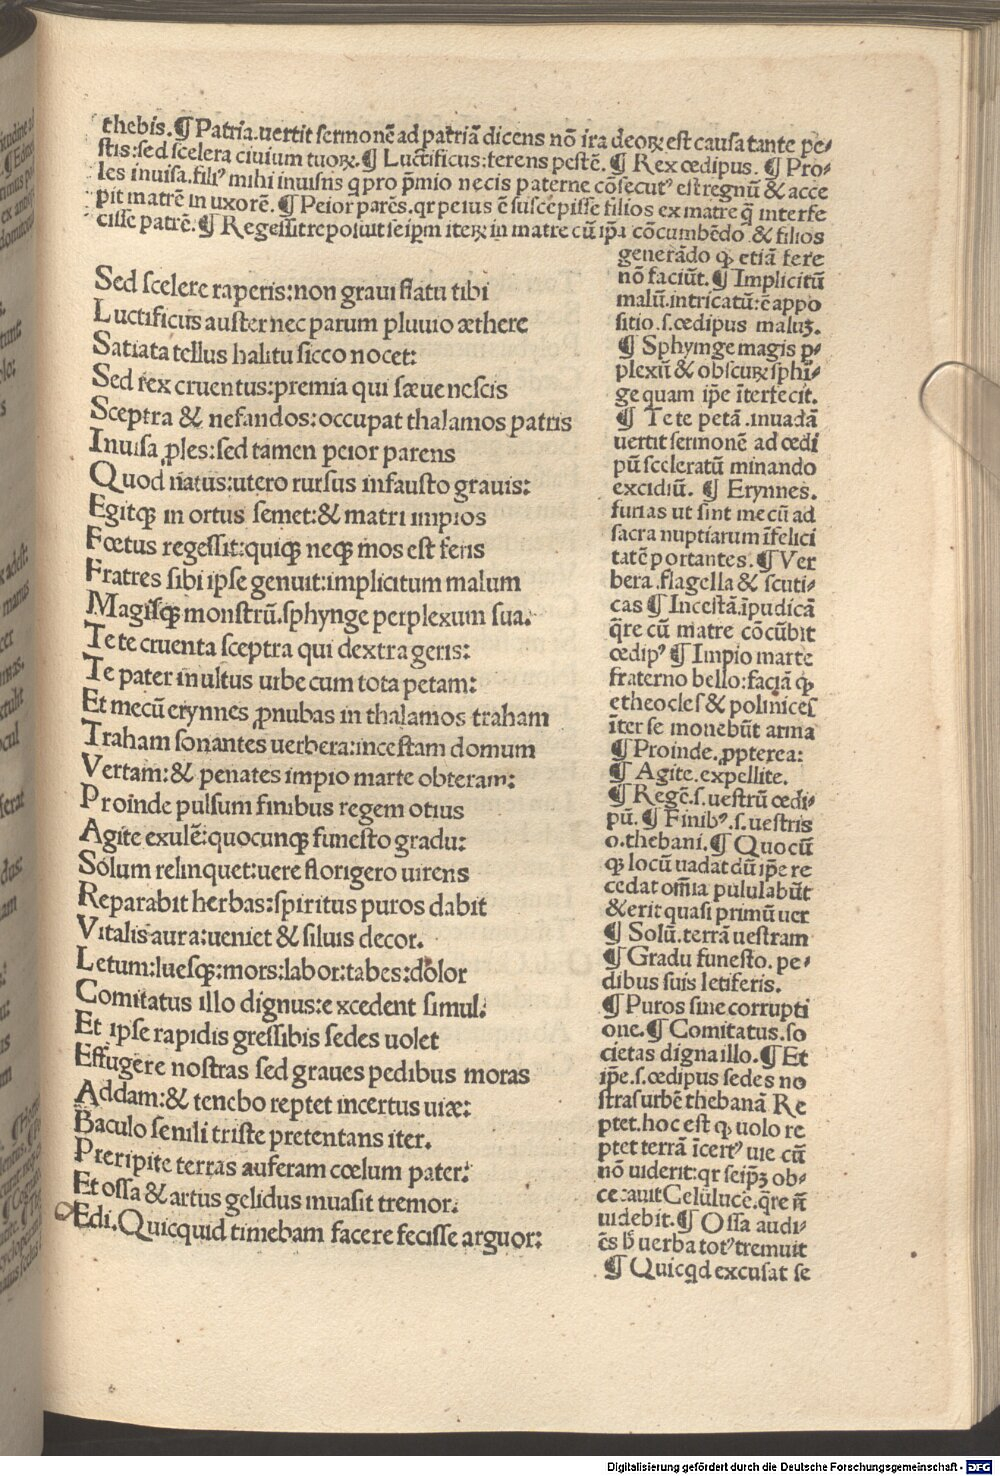 thebis.¶ Patria.uertit sermonẽ ad patriã dicens nõ ira deoꝝ est causa tante pe⸗
stis:sed scelera ciuium tuoꝝ.¶ Luctificus:ferens pestẽ. ¶ Rex œdipus. ¶ Pro⸗
les inuisa.filiꝰ mihi inuisus q pro p̃mio necis paterne cõsecutꝰ est regnũ & acce
pit matrẽ in uxorẽ. ¶ Peior parẽs.qr peius ẽ suscepisse filios ex matre q̃ interfe
cisse patrẽ.¶ Regessit reposuit seip̃m iteꝝ in matre cũ ip̃a cõcumbẽdo & filios
generãdo ꝙ etiã fere
nõ faciũt.¶ Implicitũ
malũ.intricatũ:ẽ appo
sitio.s.œdipus maluꝫ.
¶ Sphynge magis ꝑ⸗
plexũ & obscuꝝ sphĩ⸗
ge quam ip̃e ĩterfecit.
¶ Te te petã.inuadã
uertit sermonẽ ad œdi
pũ sceleratũ minando
excidiũ. ¶ Erynnes.
furias ut sint mecũ ad
sacra nuptiarum ĩfelici
tatẽ portantes.¶ Ver
bera.flagella & scuti⸗
cas ¶ Incestã.ĩpudicã
q̃re cũ matre cõcũbit
œdipꝰ ¶ Impio marte
fraterno bello:faciã ꝙ
etheocles & polinices
ĩter se monebũt arma
¶ Proinde.ꝓpterea:
¶ Agite.expellite.
¶ Regẽ.s.uestrũ œdi⸗
pũ. ¶ Finibꝰ.s.uestris
o.thebani.¶ Quocũ
ꝙ locũ uadat dũ ip̃e re
cedat om̃ia pululabũt
& erit quasi primũ uer
¶ Solũ.terrã uestram
¶ Gradu funesto. pe⸗
dibus suis letiferis.
¶ Puros sine corrupti
one.¶ Comitatus.so
cietas digna illo.¶ Et
ip̃e.s.œdipus sedes no
stras urbẽ thebanã Re
ptet.hoc est ꝙ uolo re
ptet terrã ĩcertꝰ uie cũ
nõ uiderit:qr seip̃ꝫ ob⸗
cecauit Celũ luce.q̃re ñ
uidebit.¶ Ossa audi⸗
ẽs h̃ uerba totꝰ tremuit
¶ Quicqd excusat se
Sed scelere raperis:non graui flatu tibi
Luctificus auster nec parum pluuio æthere
Satiata tellus halitu sicco nocet:
Sed rex cruentus:premia qui sæue nescis
Sceptra & nefandos:occupat thalamos patris
Inuisa ꝓles:sed tamen peior parens
Quod natus:utero rursus infausto grauis:
Egitqꝫ in ortus semet:& matri impios
Fœtus regessit:quiqꝫ neqꝫ mos est feris
Fratres sibi ipse genuit:implicitum malum
Magisqꝫ monstrũ.sphynge perplexum sua.
Te te cruenta sceptra qui dextra geris:
Te pater inultus urbe cum tota petam:
Et mecũ erynnes ꝓnubas in thalamos traham
Traham sonantes uerbera:incestam domum
Vertam:& penates impio marte obteram:
Proinde pulsum finibus regem otius
Agite exulẽ:quocunqꝫ funesto gradu:
Solum relinquet:uere florigero uirens
Reparabit herbas:spiritus puros dabit
Vitalis aura:ueniet & siluis decor.
Letum:luesqꝫ:mors:labor:tabes:dolor
Comitatus illo dignus:excedent simul.
Et ipse rapidis gressibis sedes uolet
Effugere nostras sed graues pedibus moras
Addam:& tenebo reptet incertus uiæ:
Baculo senili triste pretentans iter.
Preripite terras auferam cœlum pater:
Et ossa & artus gelidus inuasit tremor.
Edi.Quicquid timebam facere fecisse arguor:
Digitalisierung gefördert durch die Deutsche Forschungsgemeinschaft - DFG